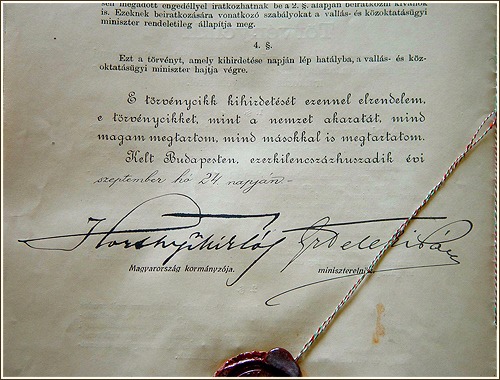 sen megadott engedéllyel iratkozhatnak be a 2. §. alapján beiratkozni kívánók
is. Ezeknek beiratkozására vonatkozó szabályokat a vallás- és közoktatásügyi
miniszter rendeletileg állapítja meg.
4. §.
Ezt a törvényt, amely kihirdetése napján lép hatályba, a vallás- és köz-
oktatásügyi miniszter hajtja végre.
E törvénycikk kihirdetését ezennel elrendelem,
e törvénycikket, mint a nemzet akaratát, mind
magam megtartom, mind másokkal is megtartatom.
Kelt Budapesten, ezerkilencszázhuszadik évi
szeptember hó 24. napján.-
Horthy Miklós
Magyarország kormányzója.
miniszterelnök